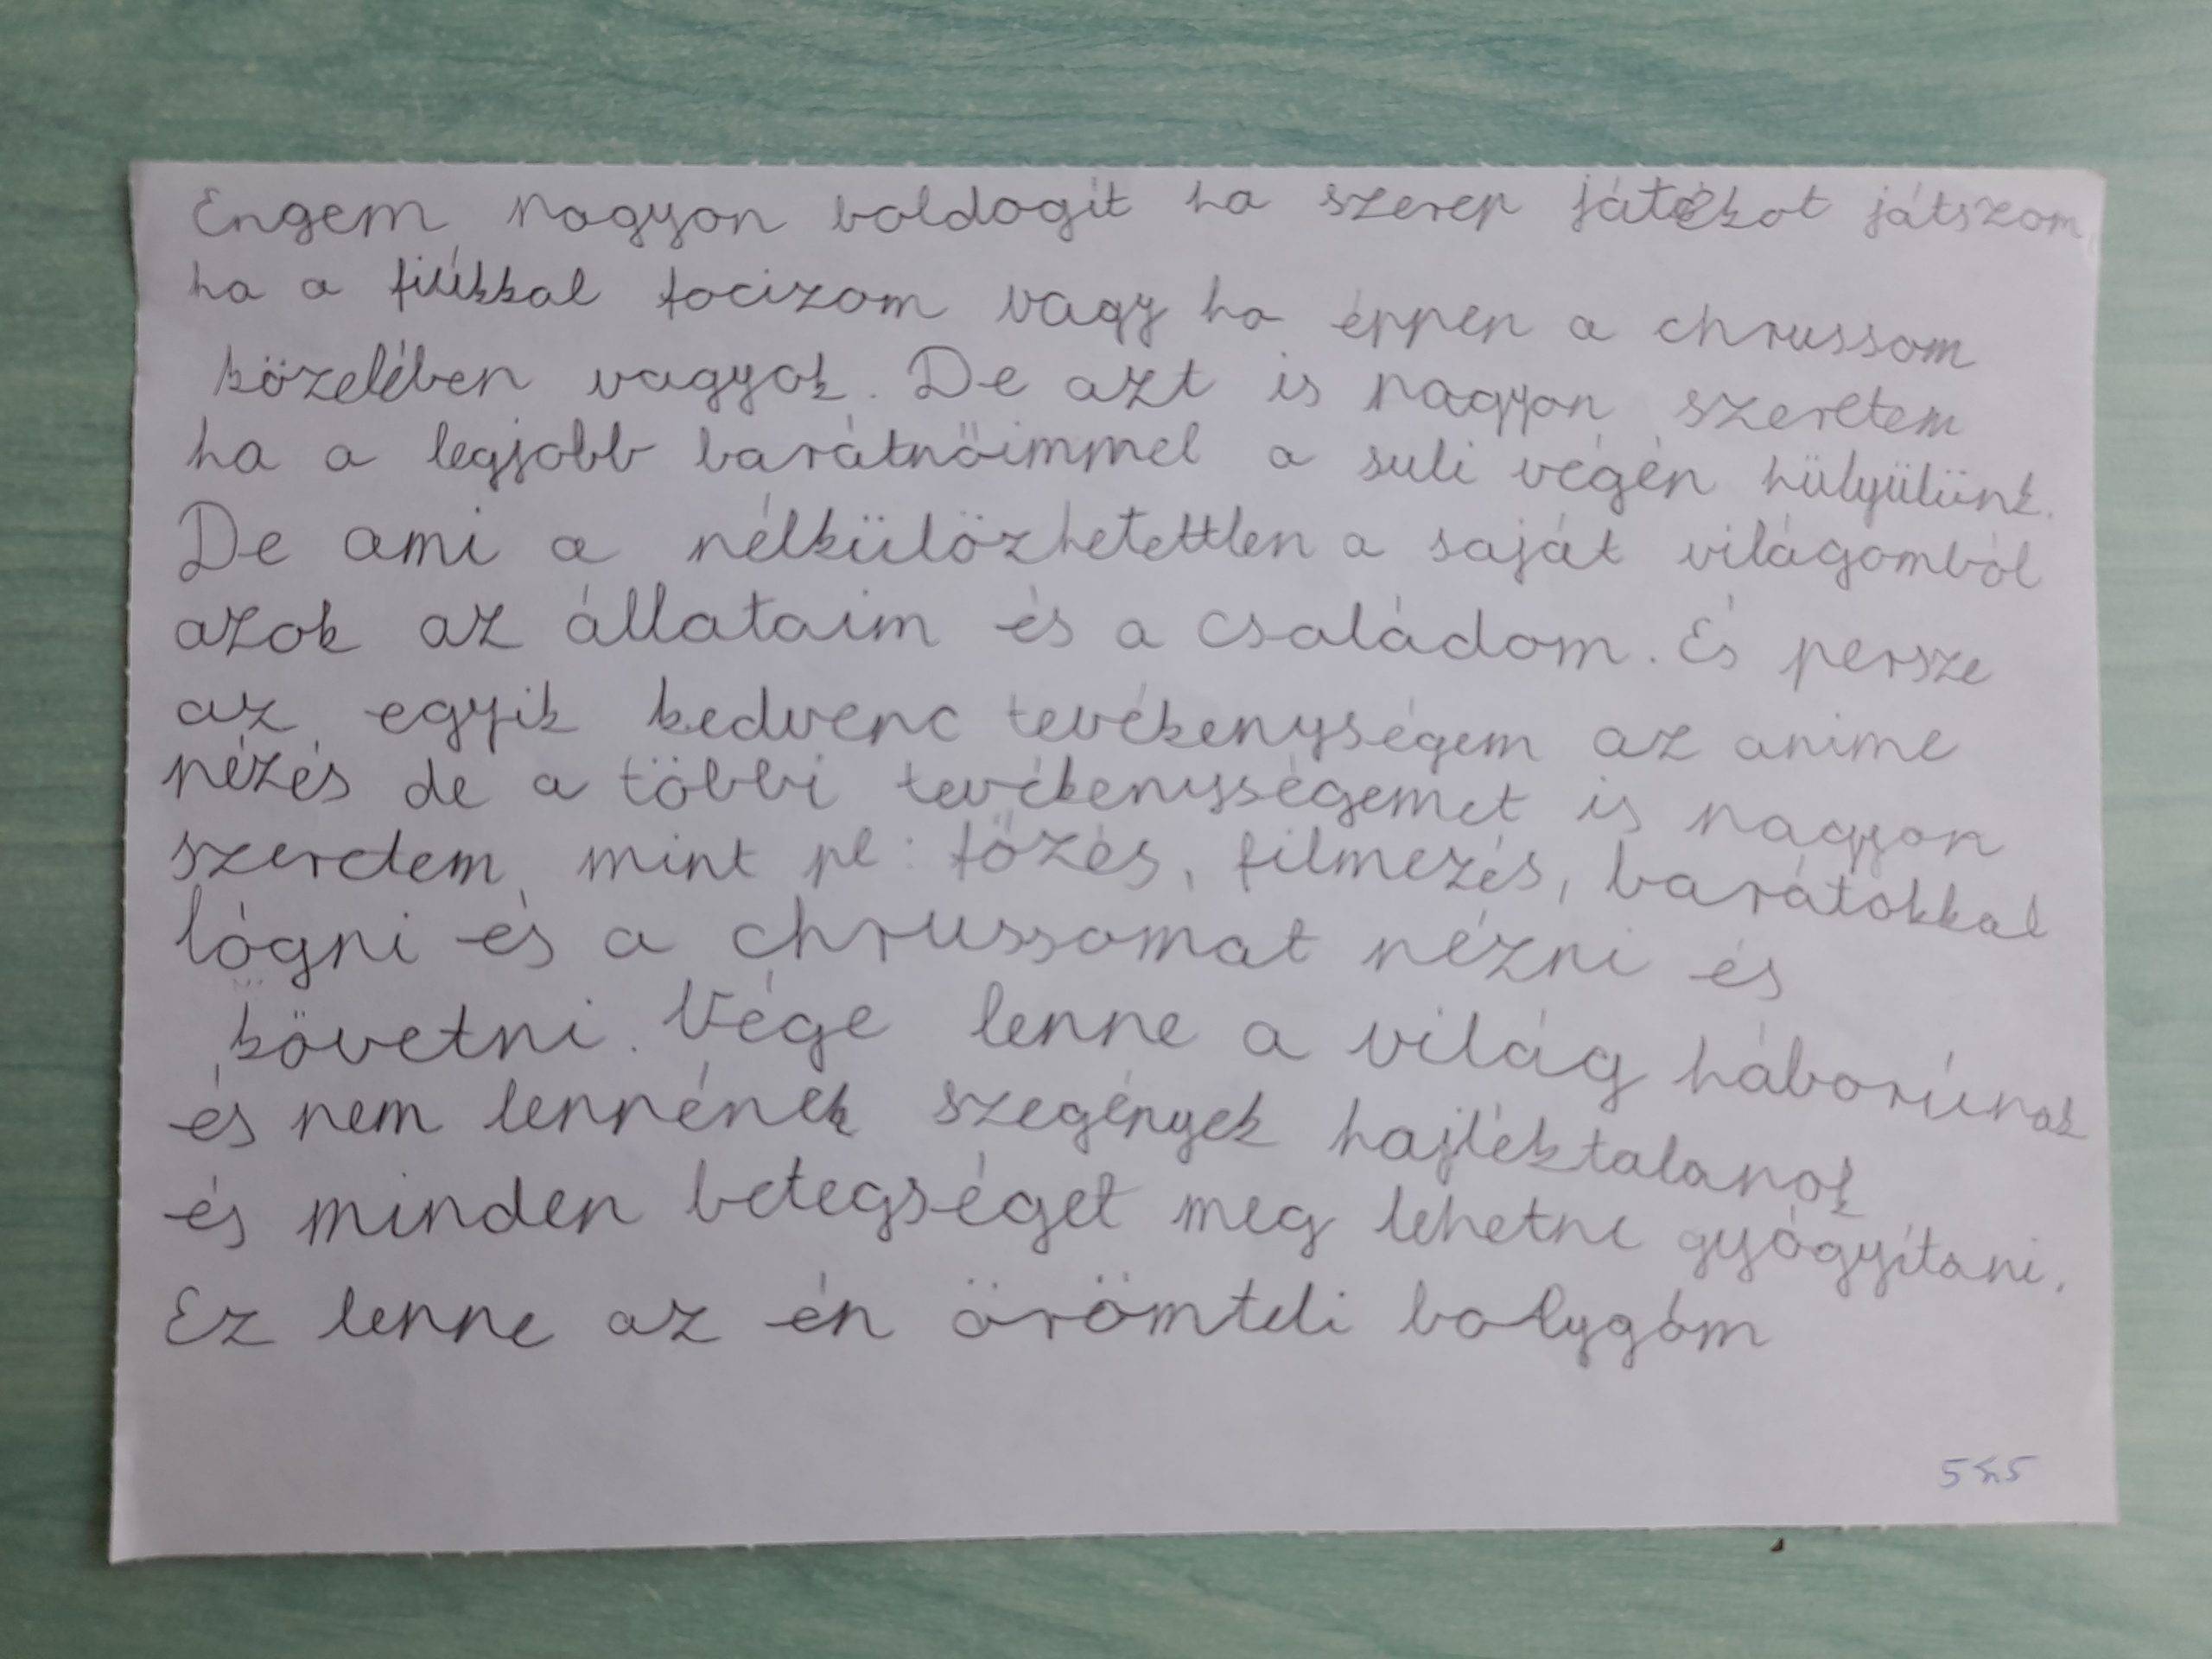 Engem nagyon boldogít ha szerep játékot játszom,
ha a fiúkkal focizom vagy ha éppen a chrussom
közelében vagyok. De azt is nagyon szeretem
ha a legjobb barátnőimmel a suli végén hülyülünk.
De ami a nélkülözhetettlen a saját világomból
azok az állataim és a családom. És persze
az egyik kedvenc tevékenységem az anime
nézés de a többi tevékenysségemet is nagyon
szeretem, mint pl: főzés, filmezés, barátokkal
lógni és a chrussomat nézni és
követni. Vége lenne a világ háborúnak
és nem lennének szegények hajléktalanok
és minden betegséget meg lehetne gyógyítani.
Ez lenne az én örömteli bolygóm